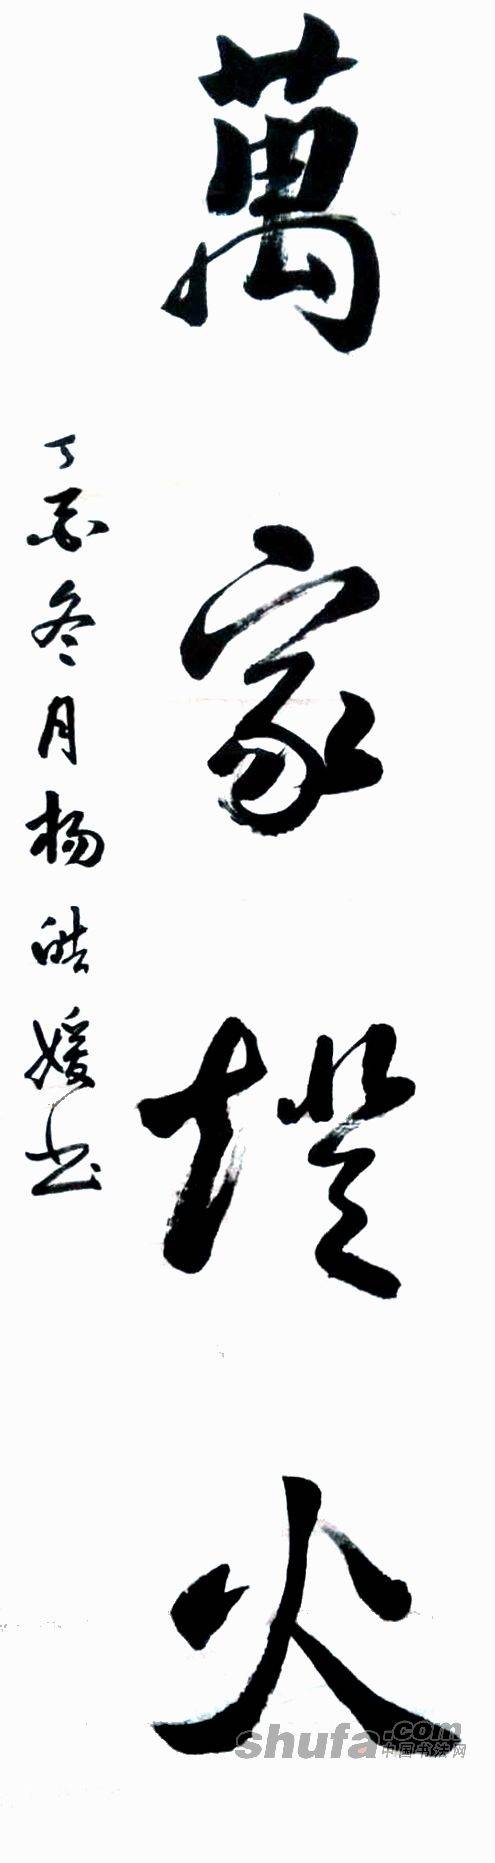 萬家燈火
丁亥冬月杨皓媛书
shufa.com
中国书法网